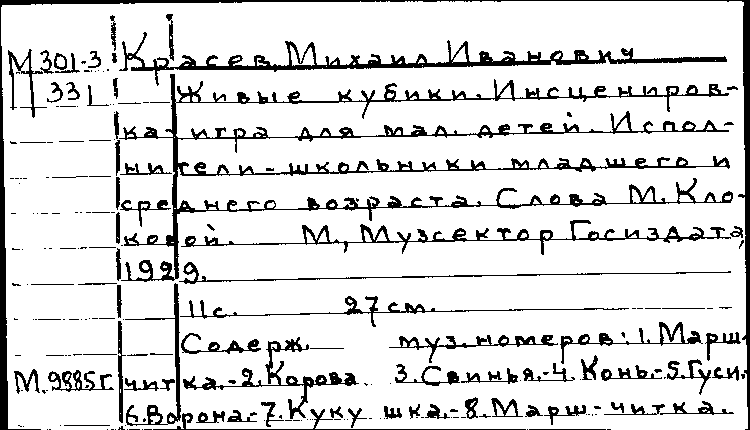 М 301-3 Красев, Михаил Иванович
331 Живые кубики. Инсцениров-
ка-игра для мал. детей. Испол-
нители-школьники младшего и
среднего возраста. Слова М. Кло-
ковой. М., Музсектор Госиздата,
1929.
11с. 27см.
Содерж. муз. номеров: 1. Марш-
М.9885г. читка.-2. Корова 3. Свинья.-4. Конь.-5. Гуси.
6. Ворона.-7. Кукушка.-8. Марш-читка.